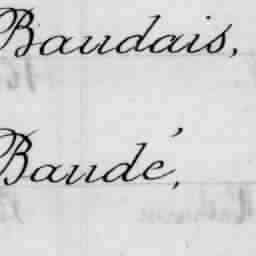 Baudais,
Baudé,